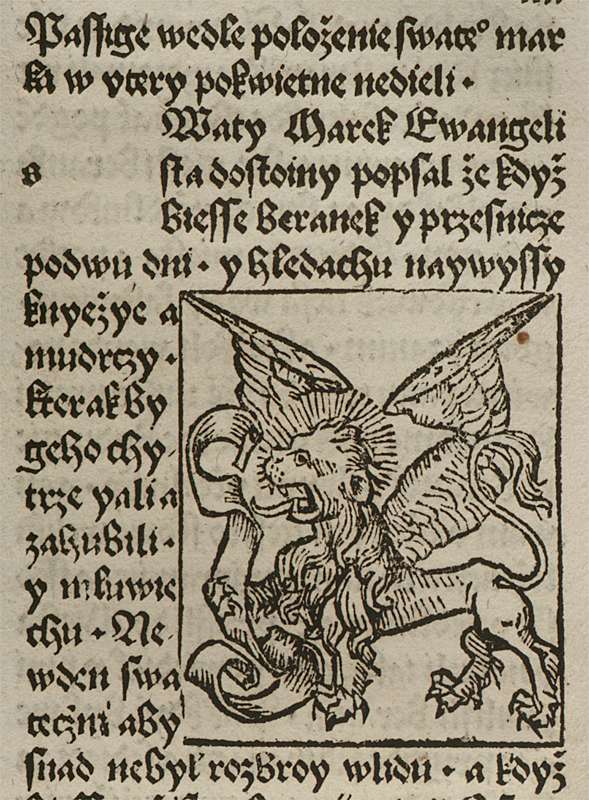 Passige wedle položenie swateº mar
ka w vtery pokwietne nedieli ·
Waty Marek Ewangeli
s sta dostoiny popsal že když
biesse beranek y przesnicze
podwu dni · y hledachu naywyssy
knyežye a
mudrczy ·
kterak by
geho chy-
trze yali a
zahubili ·
y mluwie
chu · Ne-
w den swa
teczni aby
snad nebyl rozbroy w lidu · a když